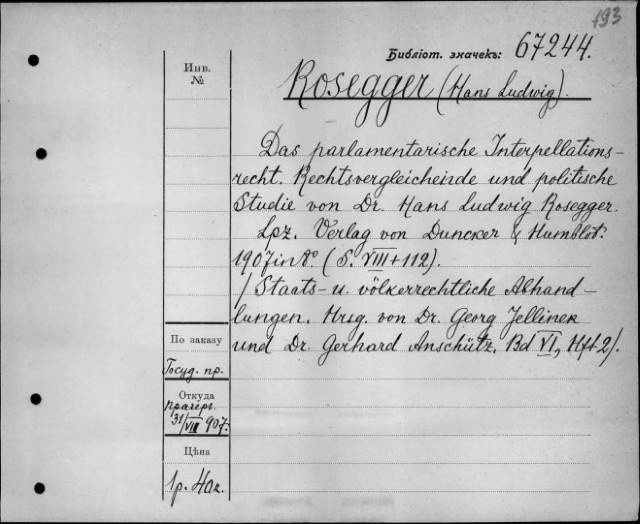 193
Библіот. значекъ: 67244.
Инв.
№
Rosegger (Hans Ludwig).
Das parlamentarische Interpellations-
recht. Rechtsvergleichende und politische
Studie von Dr. Hans Ludwig Rosegger.
Lpz. Verlag von Duncker & Humblot.
1907 in 8°. (S. VIII + 112).
/Staats- u. völkerrechtliche Abhand-
lungen. Hrsg. von Dr. Georg Jellinek
und Dr. Gerhard Anschütz. Bd VI, Hft 2/.
По заказу
Госуд. пр.
Откуда
Прагеръ
31/VII 907.
Цѣна
1р. 40к.